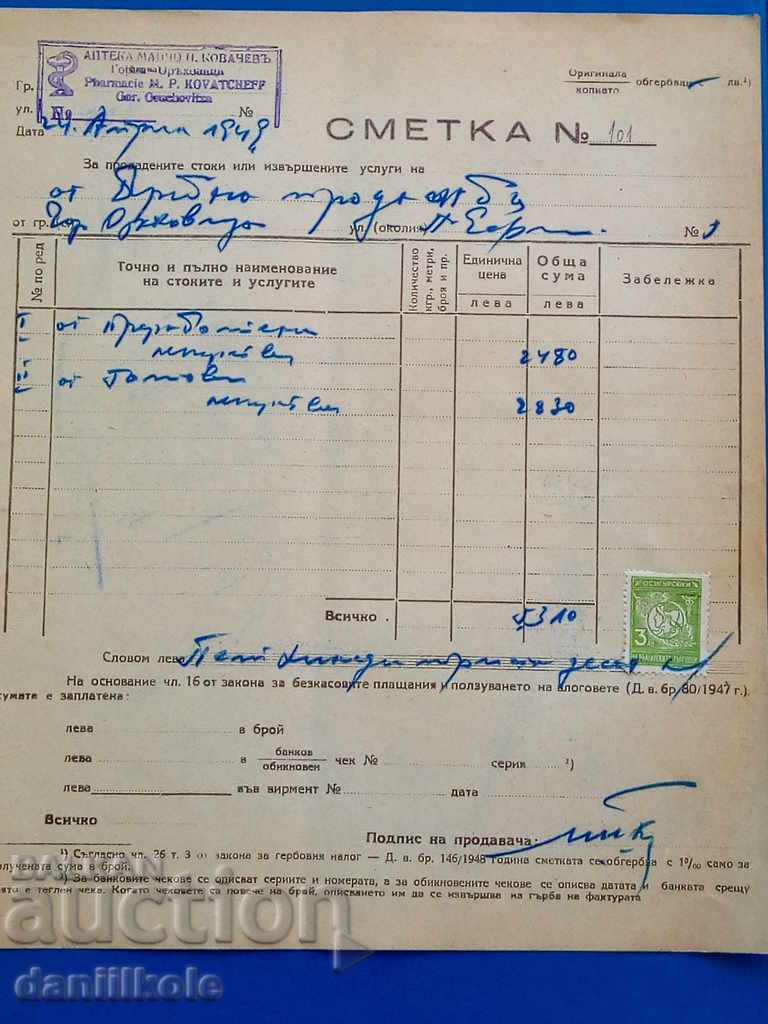 АПТЕКА МАНЧО П. КОВАЧЕВЪ
Горна Орѣховица
Pharmacie M. P. KOVATCHEFF
Gor. Orechovitza
№
Гр.
ул. №
Дата 24. Април 1949
Оригинала
копието обгербван лв.¹)
СМЕТКА № 101
За продадените стоки или извършените услуги на
от Дребно продажби
от гр. (с.) Гор Оряховица ул. (околия) № 1
№ по ред
Точно и пълно наименование
на стоките и услугите
Количество
кгр., метри,
броя и пр.
Единична
цена
лева
Обща
сума
лева
Забележка
I от Преработени
лекарства 2480
II от Готови
лекарства 2830
Всичко 5310
ОСИГУРОВКИ
3 лв
Словом лева Пет хиляди триста десет
На основание чл. 16 от закона за безкасовите плащания и ползуването на влоговете (Д. в. бр. 80/1947 г.).
сумата е заплатена:
лева в брой
лева в банков
обикновен чек № серия ²)
лева във вирмент № дата
Всичко
Подпис на продавача:
¹) Съгласно чл. 26 т. 3 от закона за гербовия налог — Д. в. бр. 146/1948 година сметката се обгербва с 1⁰/₀₀ само за
получената сума в брой.
²) За банковите чекове се описват сериите и номерата, а за обикновените чекове се описва датата и банката срещу
която е теглен чека. Когато чековете са повече на брой, описването им да се извършва на гърба на фактурата
BALKAN
auction
daniilkole